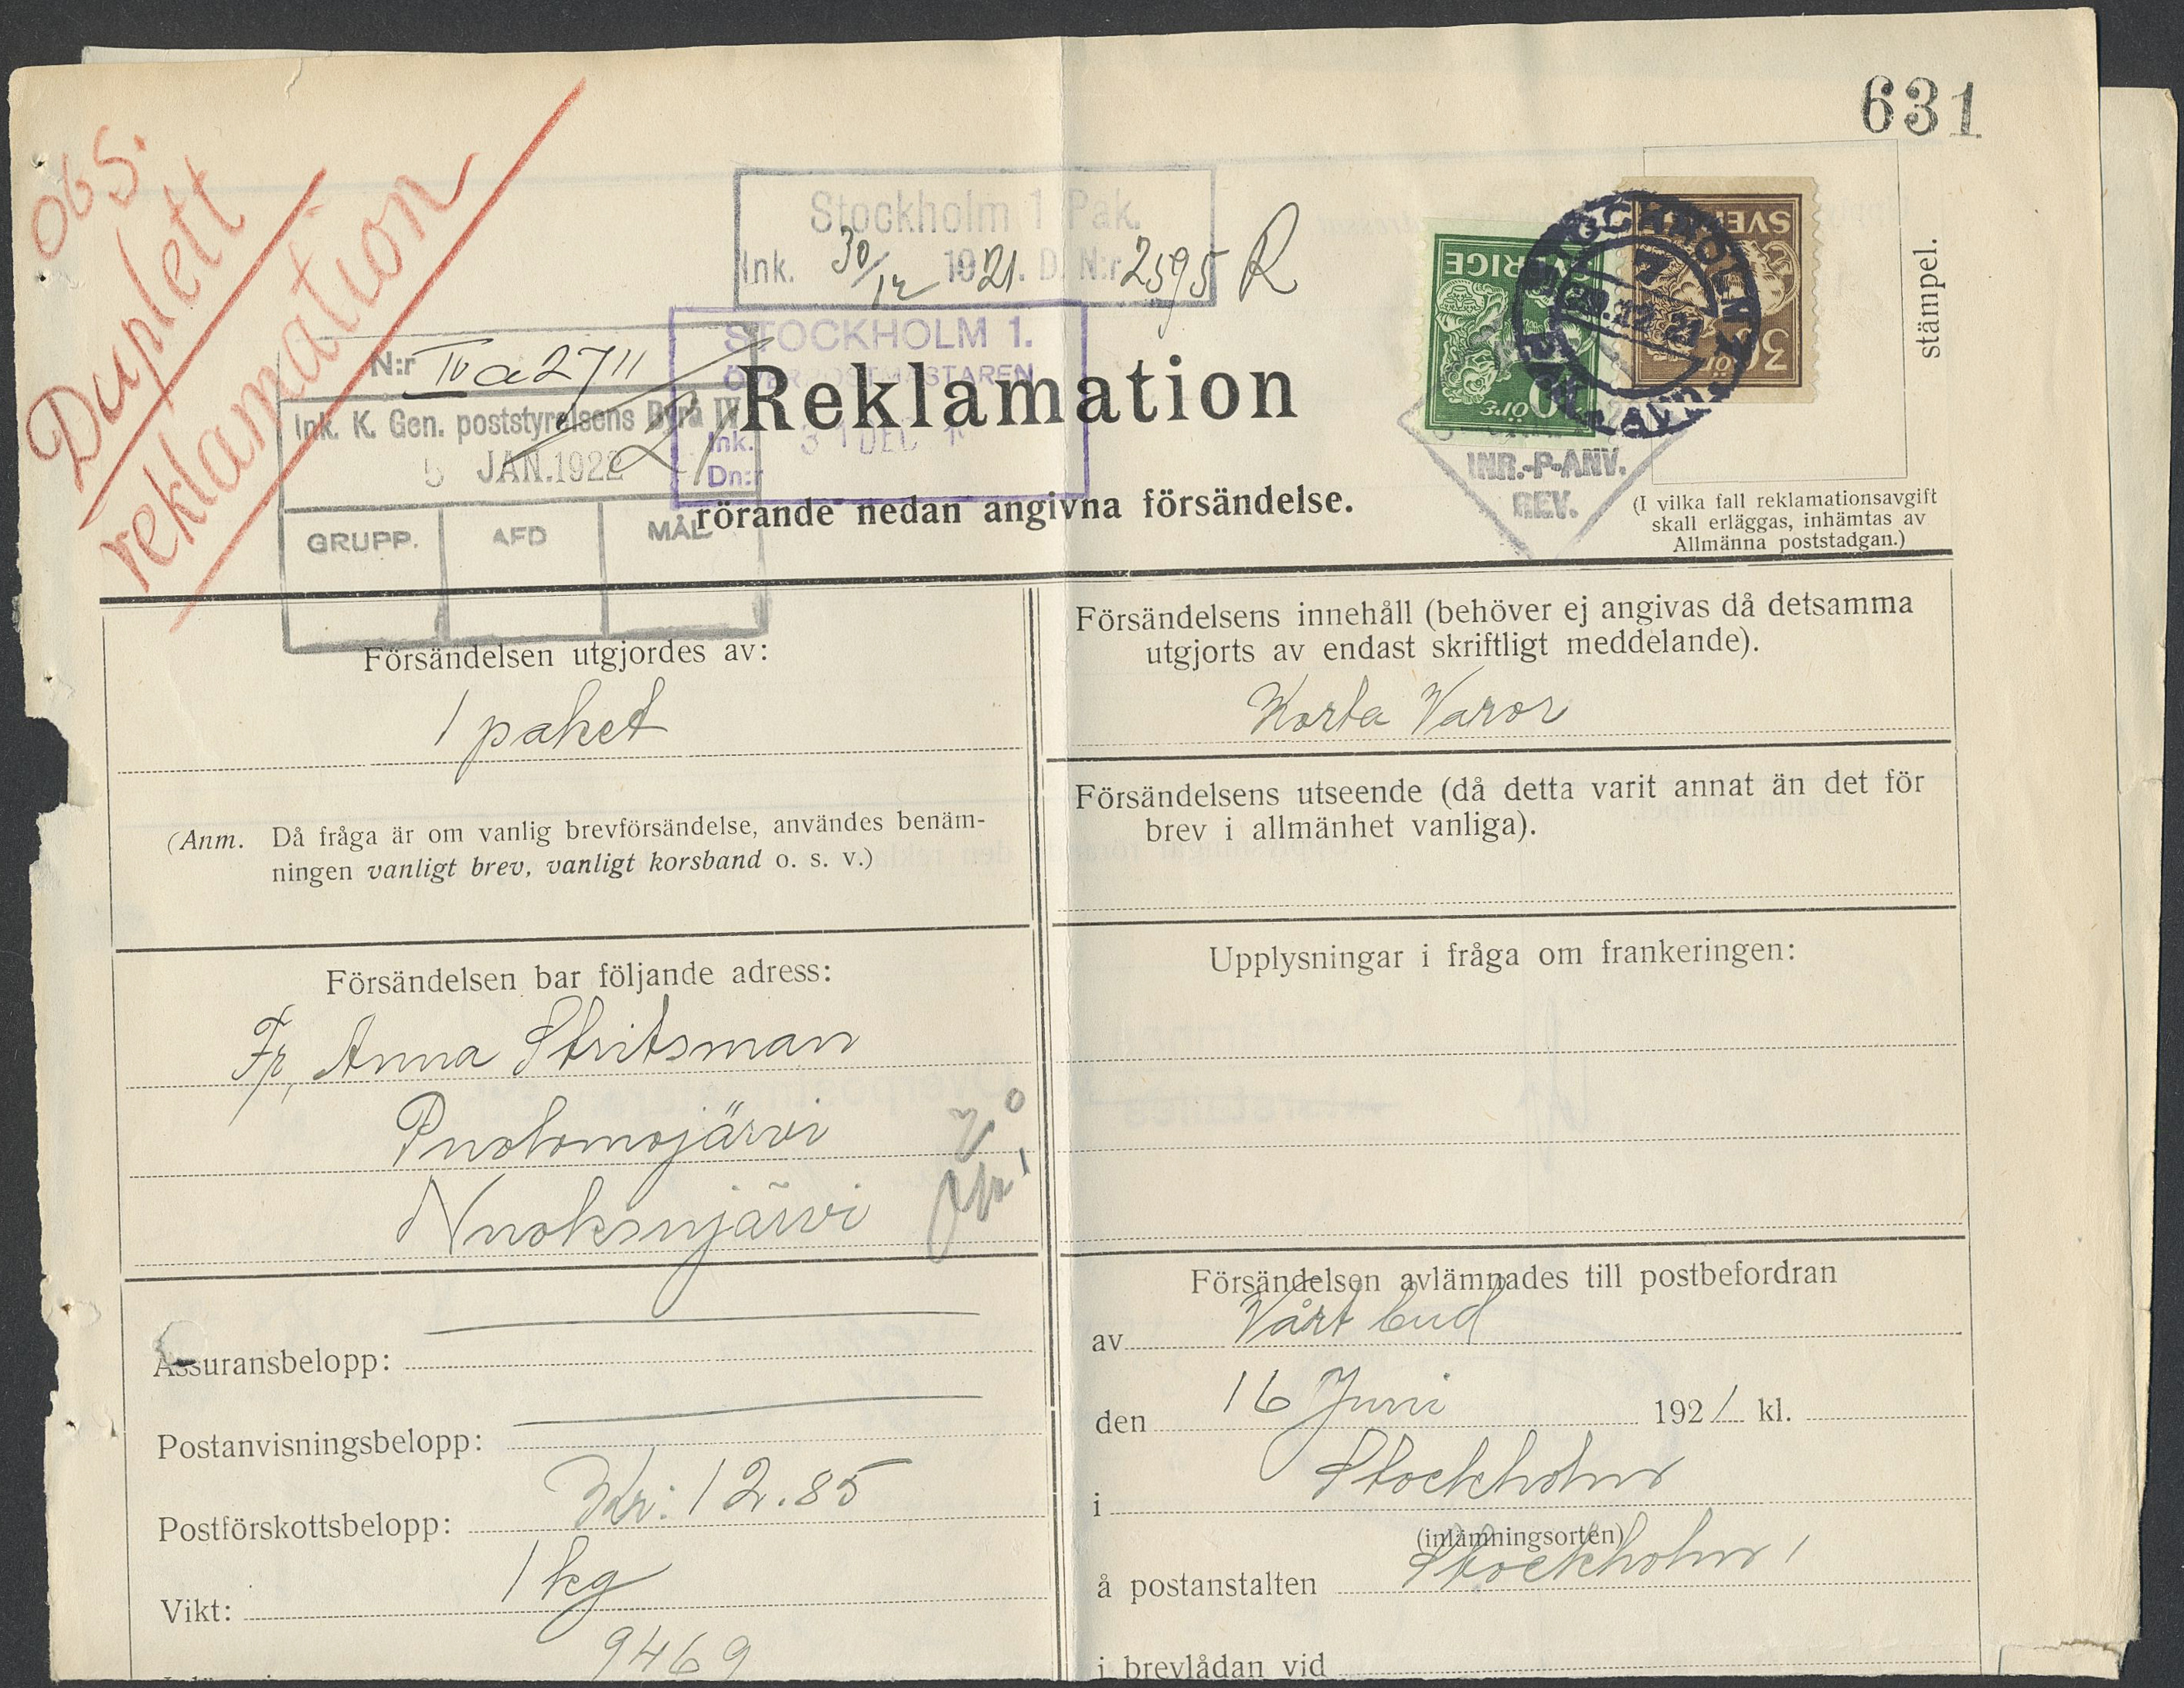 631
obs.
Duplett
reklamation
Stockholm 1 Pak.
Ink. 30/12 1921. D. N:r 2595 R
SVERIGE
ÖRE
SVERIGE
30 ÖRE
STOCKHOLM
29.12.21
stämpel.
N:r IV a 2711
Ink. K. Gen. poststyrelsens Byrå IV
5 JAN. 1922
GRUPP. AFD MÅL
STOCKHOLM 1.
ÖVERPOSTMÄSTAREN
Ink. 31 DEC
Dn:r
Reklamation
rörande nedan angivna försändelse.
INR.-P-ANV.
REV.
(I vilka fall reklamationsavgift
skall erläggas, inhämtas av
Allmänna poststadgan.)
Försändelsen utgjordes av:
1 paket
(Anm. Då fråga är om vanlig brevförsändelse, användes benäm-
ningen vanligt brev, vanligt korsband o. s. v.)
Försändelsen bar följande adress:
Fr, Anna Stritsman
Puolomojärvi
Nuoksujärvi
Assuransbelopp:
Postanvisningsbelopp:
Postförskottsbelopp: Kr: 12.85
Vikt: 1 kg
9469
Försändelsens innehåll (behöver ej angivas då detsamma
utgjorts av endast skriftligt meddelande).
Korta Varor
Försändelsens utseende (då detta varit annat än det för
brev i allmänhet vanliga).
Upplysningar i fråga om frankeringen:
Försändelsen avlämnades till postbefordran
av Vårt bud
den 16 Juni 1921 kl.
i Stockholm
(inlämningsorten)
å postanstalten Stockholm 1
i brevlådan vid